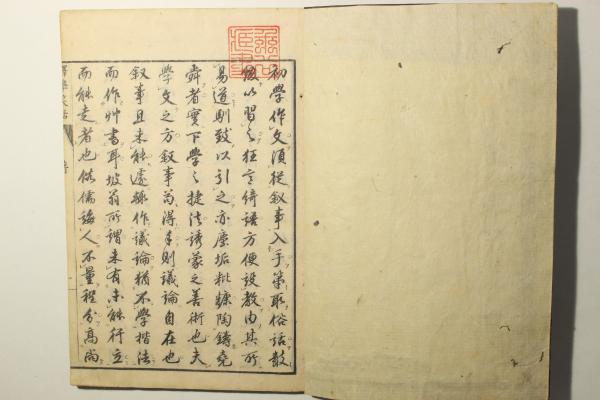 初學作文須從叙事入手策取俗話散
做以習之狂言綺語方便設教由其所
易道馴致以引之亦塵垢粃糠陶鋳堯
舜者實下學之捷法誘蒙之善術也夫
學文之方叙事為得手則議論自在也
叙事且未能遽輒作議論猶不學楷法
而作艸書耳坡翁所謂未有未能行立
而能走者也供儒人不量程分高尚